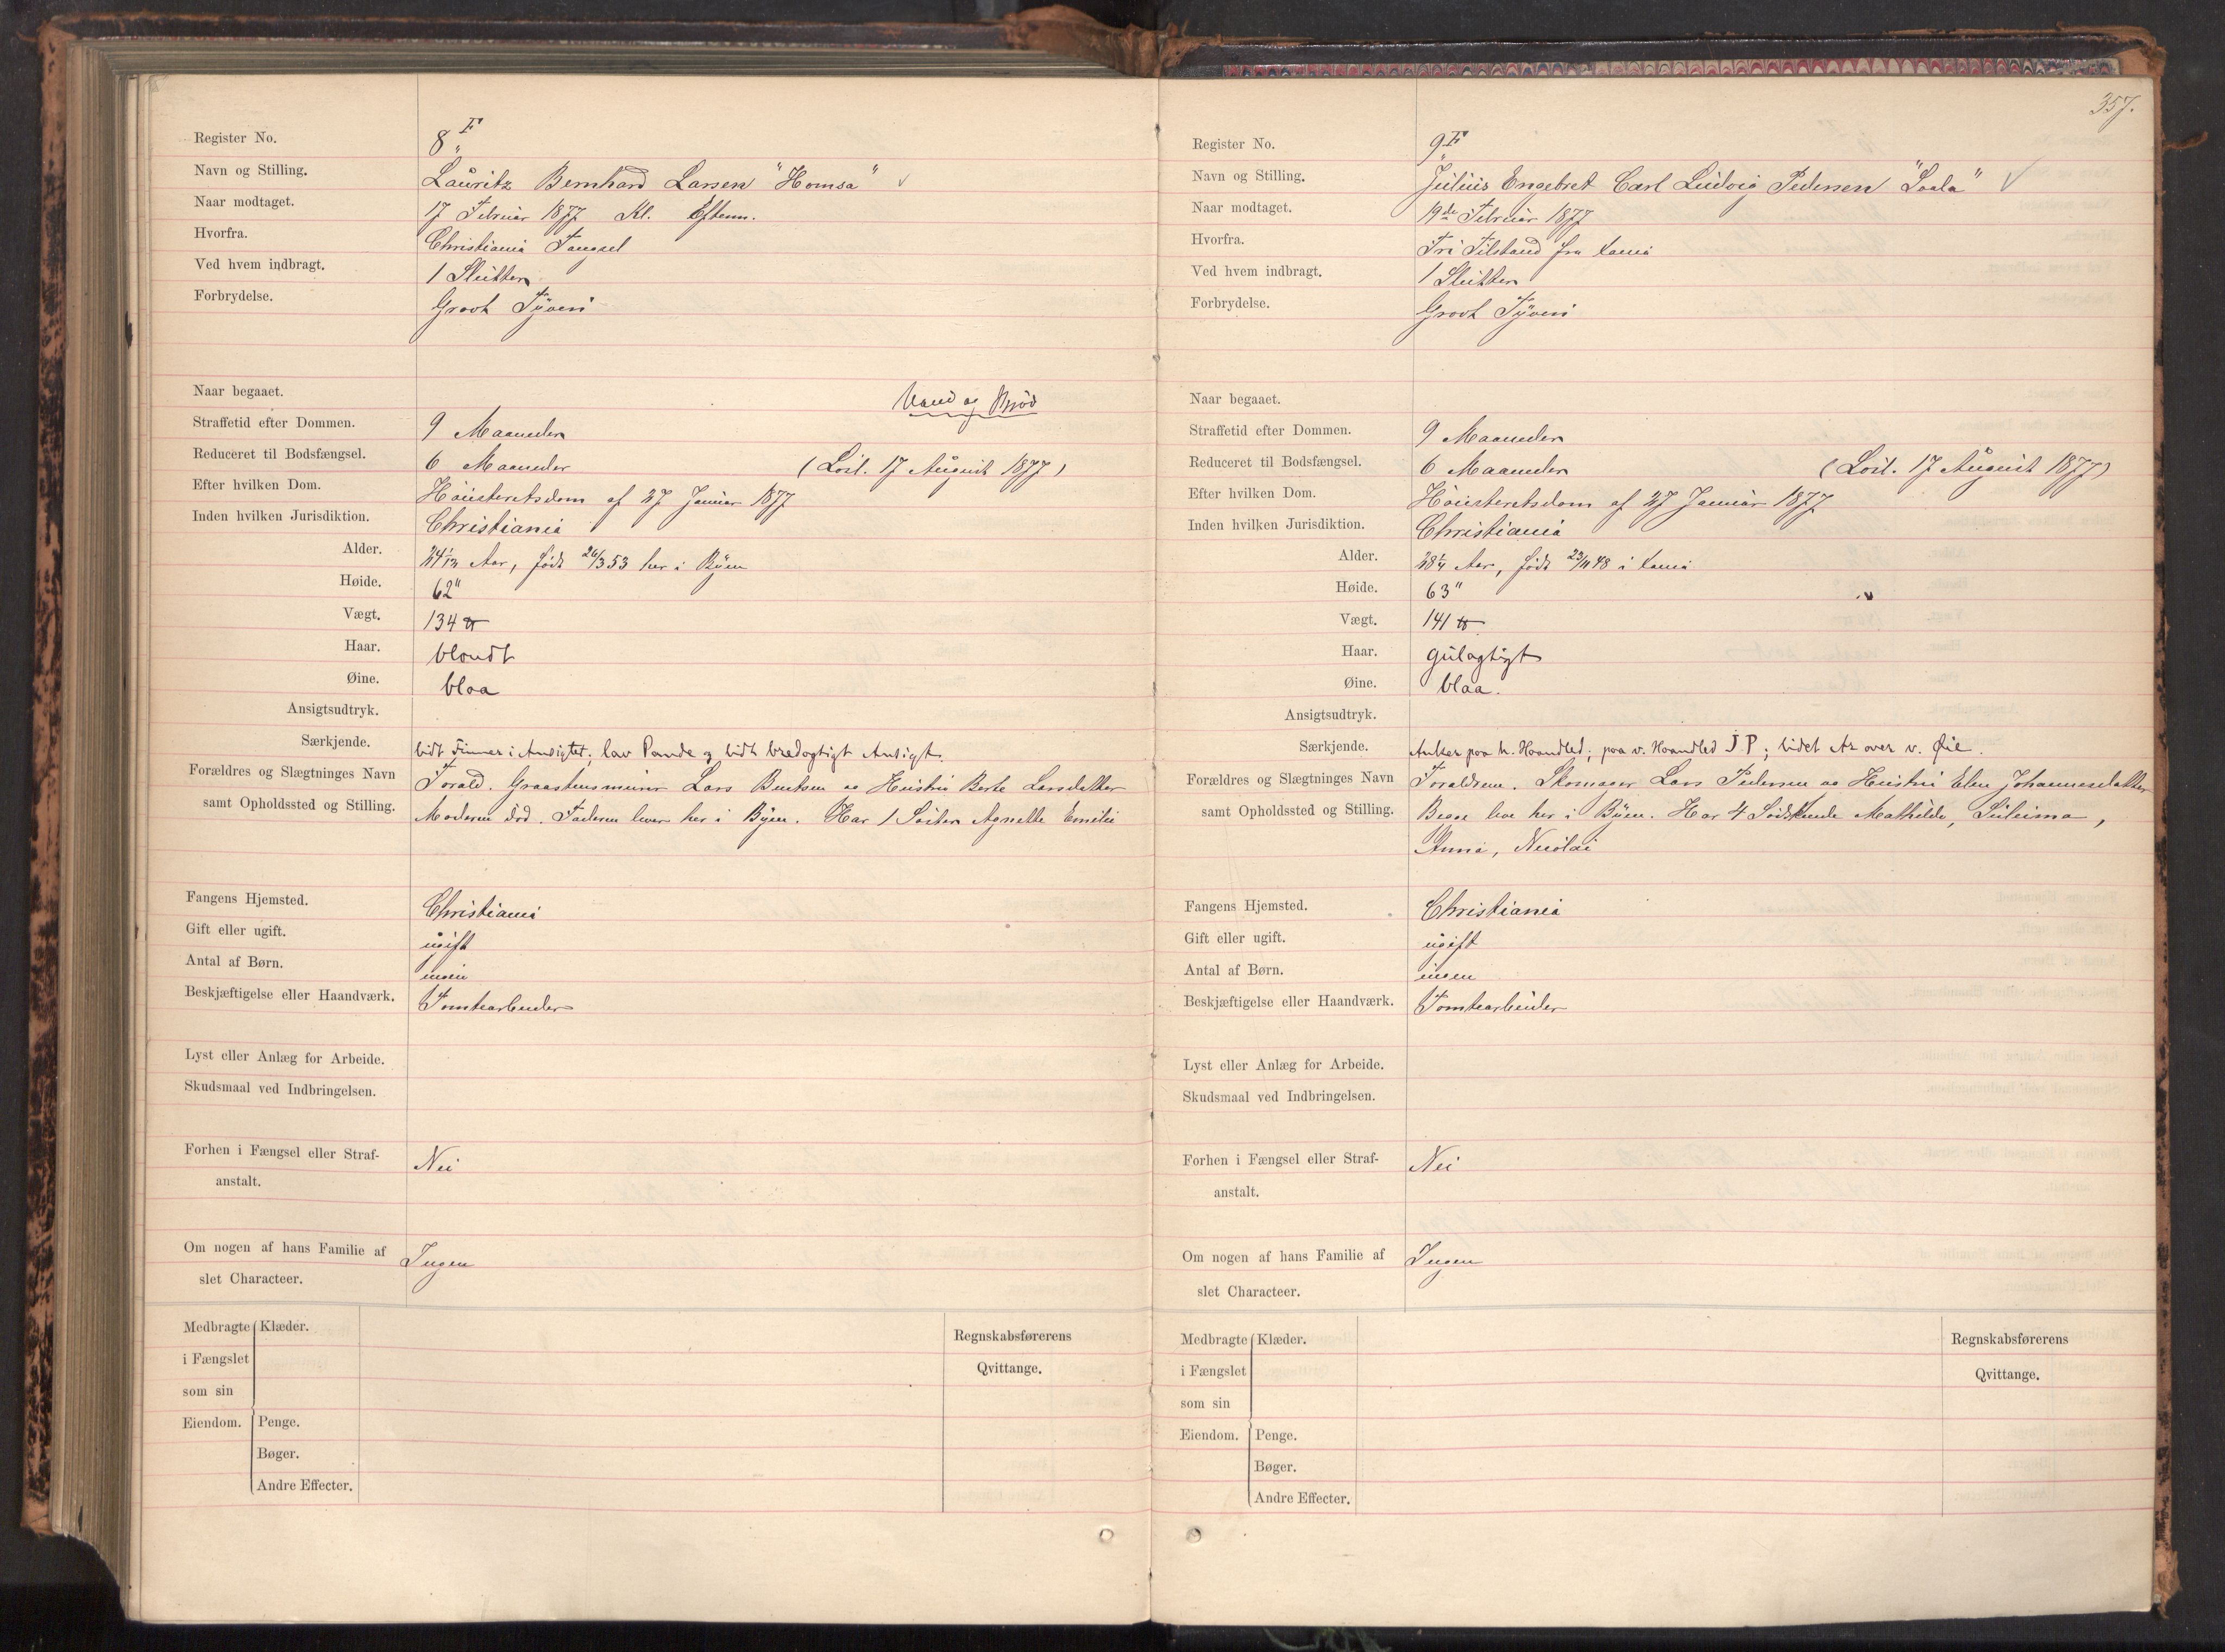 Register No. 8 F
Navn og Stilling. Lauritz Bernhard Larsen "Homsa"
Naar modtaget. 17 Februar 1877 Kl. Efterm.
Hvorfra. Christiania Fængsel
Ved hvem indbragt. 1 Slutter
Forbrydelse. Grovt Tyveri
Naar begaaet. Vand og Brød
Straffetid efter Dommen. 9 Maaneder
Reduceret til Bodsfængsel. 6 Maaneder (Løsl. 17 August 1877)
Efter hvilken Dom. Høiesteretsdom af 27 Januar 1877
Inden hvilken Jurisdiktion. Christiania
Alder. Aar, født 26/3 53 her i Byen
Høide. 62"
Vægt. 134 ℔
Haar. blondt
Øine. blaa
Ansigtsudtryk.
Særkjende. lidt Finner i Ansigtet; lav Pande og lidt bredagtigt Ansigt.
Forældres og Slægtninges Navn Foræld. Graastensmurer Lars Berntsen og Hustru Berte Larsdatter
samt Opholdssted og Stilling. Moderen død. Faderen lever her i Byen. Har 1 Søster Agnette Emilie
Fangens Hjemsted. Christiania
Gift eller ugift. ugift
Antal af Børn. ingen
Beskjæftigelse eller Haandværk. Tomtearbeider
Lyst eller Anlæg for Arbeide.
Skudsmaal ved Indbringelsen.
Forhen i Fængsel eller Straf- Nei
anstalt.
Om nogen af hans Familie af Ingen
slet Characteer.
Medbragte Klæder. Regnskabsførerens
i Fængslet Qvittange.
som sin
Eiendom. Penge.
Bøger.
Andre Effecter.
357.
Register No. 9 F
Navn og Stilling. Julius Engebret Carl Ludvig Pedersen "Laala"
Naar modtaget. 19de Februar 1877
Hvorfra. Fri Tilstand fra Xania
Ved hvem indbragt. 1 Slutter
Forbrydelse. Grovt Tyveri
Naar begaaet.
Straffetid efter Dommen. 9 Maaneder
Reduceret til Bodsfængsel. 6 Maaneder (Løsl. 17 August 1877)
Efter hvilken Dom. Høiesteretsdom af 27 Januar 1877
Inden hvilken Jurisdiktion. Christiania
Alder. 28¼ Aar, født 23/11 48 i Xania
Høide. 63"
Vægt. 141 ℔
Haar. gulagtigt
Øine. blaa.
Ansigtsudtryk.
Særkjende. Anker paa h. Haandled; paa v. Haandled J P; lidet Ar over v. Øie.
Forældres og Slægtninges Navn Forældrene. Skomager Lars Pedersen og Hustru Elen Johannesdatter
samt Opholdssted og Stilling. Begge leve her i Byen. Har 4 Sødskende Mathilde, Suleima,
Anna, Nicolai
Fangens Hjemsted. Christiania
Gift eller ugift. ugift
Antal af Børn. ingen
Beskjæftigelse eller Haandværk. Tomtearbeider
Lyst eller Anlæg for Arbeide.
Skudsmaal ved Indbringelsen.
Forhen i Fængsel eller Straf- Nei
anstalt.
Om nogen af hans Familie af Ingen
slet Characteer.
Medbragte Klæder. Regnskabsførerens
i Fængslet Qvittange.
som sin
Eiendom. Penge.
Bøger.
Andre Effecter.